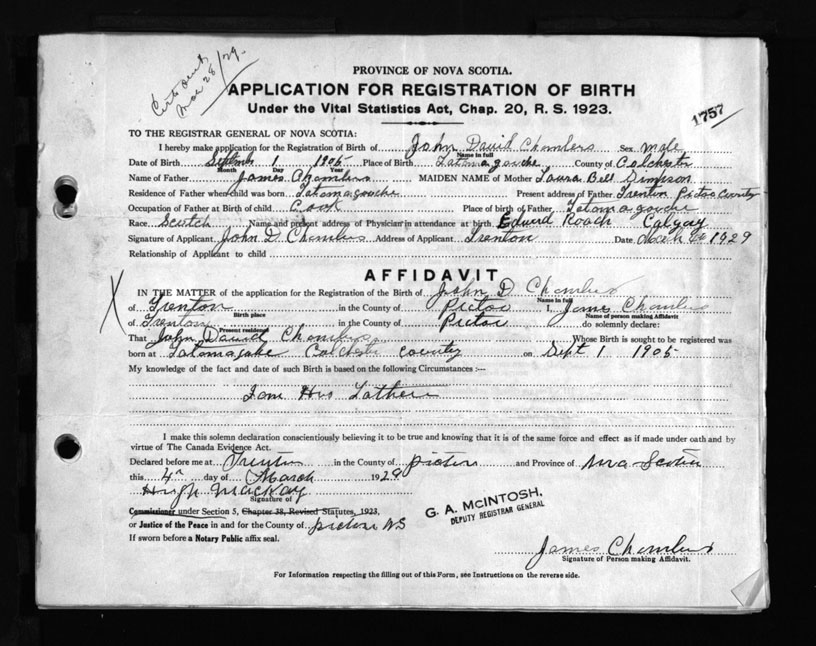 Mar 28/29.
PROVINCE OF NOVA SCOTIA.
APPLICATION FOR REGISTRATION OF BIRTH
Under the Vital Statistics Act, Chap. 20, R. S. 1923.
1757
TO THE REGISTRAR GENERAL OF NOVA SCOTIA:
I hereby make application for the Registration of Birth of John David Chambers Sex male
Name in full
Date of Birth September 1 1905 Place of Birth Tatamagouche County of Colchester
Month Day Year
Name of Father James Chambers MAIDEN NAME of Mother Laura Bell Simpson
Residence of Father when child was born Tatamagouche Present address of Father Trenton Pictou County
Occupation of Father at Birth of child Cook Place of birth of Father Tatamagouche
Race Scotch Name and present address of Physician in attendance at birth Edward Roach Calgay
Signature of Applicant John D. Chambers Address of Applicant Trenton Date March 1929
Relationship of Applicant to child
AFFIDAVIT
IN THE MATTER of the application for the Registration of the Birth of John D Chambers
Name in full
of Trenton in the County of Pictou I, James Chambers
Birth place Name of person making Affidavit
of Trenton in the County of Pictou do solemnly declare:
Present residence
That John David Chambers Whose Birth is sought to be registered was
born at Tatamagahe Colchester County on Sept 1 1905
My knowledge of the fact and date of such Birth is based on the following Circumstances :—
I am His Father
I make this solemn declaration conscientiously believing it to be true and knowing that it is of the same force and effect as if made under oath and by
virtue of The Canada Evidence Act.
Declared before me at Trenton in the County of pictou and Province of Nova Scotia
this 4th day of March 1929
Hugh MacKay
Signature of
Commissioner under Section 5, Chapter 38, Revised Statutes, 1923,
or Justice of the Peace in and for the County of pictou NS
If sworn before a Notary Public affix seal.
G. A. McINTOSH,
DEPUTY REGISTRAR GENERAL
James Chambers
Signature of Person making Affidavit.
For Information respecting the filling out of this Form, see Instructions on the reverse side.